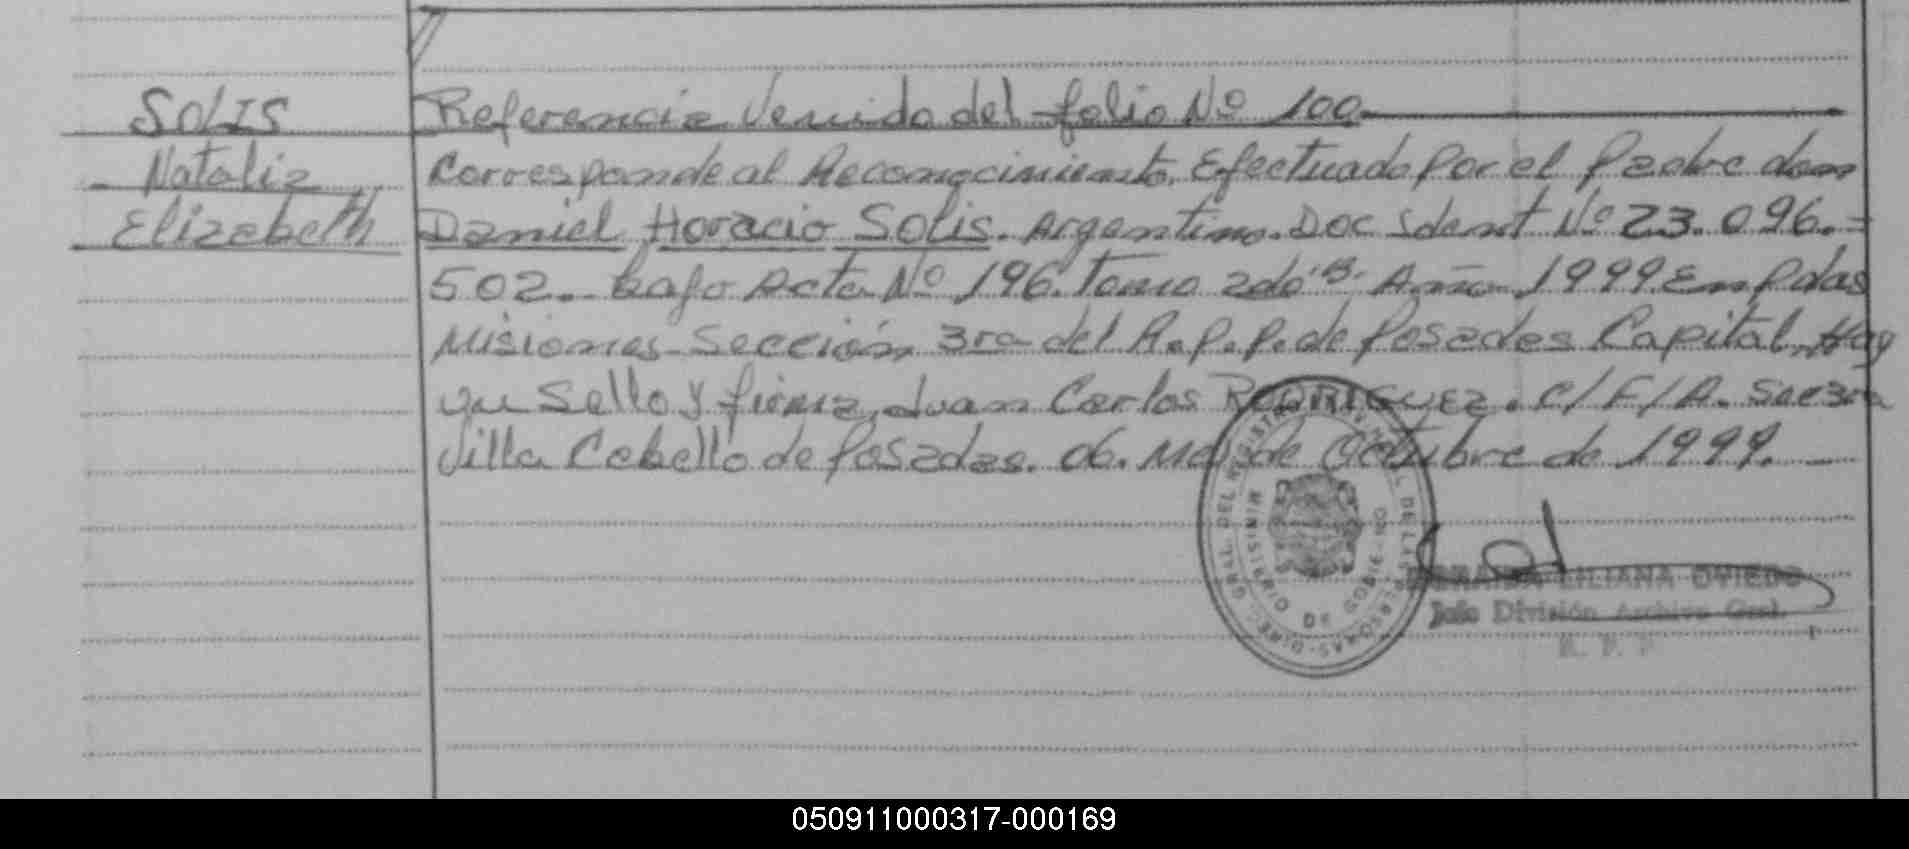 SOLIS
Natalia
Elizabeth
Referencia Venido del folio Nº 100
Corresponde al Reconocimiento Efectuado Por el Padre don
Daniel Horacio Solis. Argentino. Doc Ident Nº 23.096.=
502. bajo Acta Nº 196. Tomo 2do "B" Año 1999. En Pdas
Misiones Sección 3ra del R.P.P. de Posadas Capital. Hay
un Sello y firma, Juan Carlos RODRIGUEZ. C/F/A. Sec 3ra
Villa Cabello de Posadas. 06. Mes de Octubre de 1999.
DIREC. GRAL. DEL REGISTRO DE LAS PERSONAS
LILIANA OVIEDO
Jefe División Archivo Gral.
R. P. P
050911000317-000169